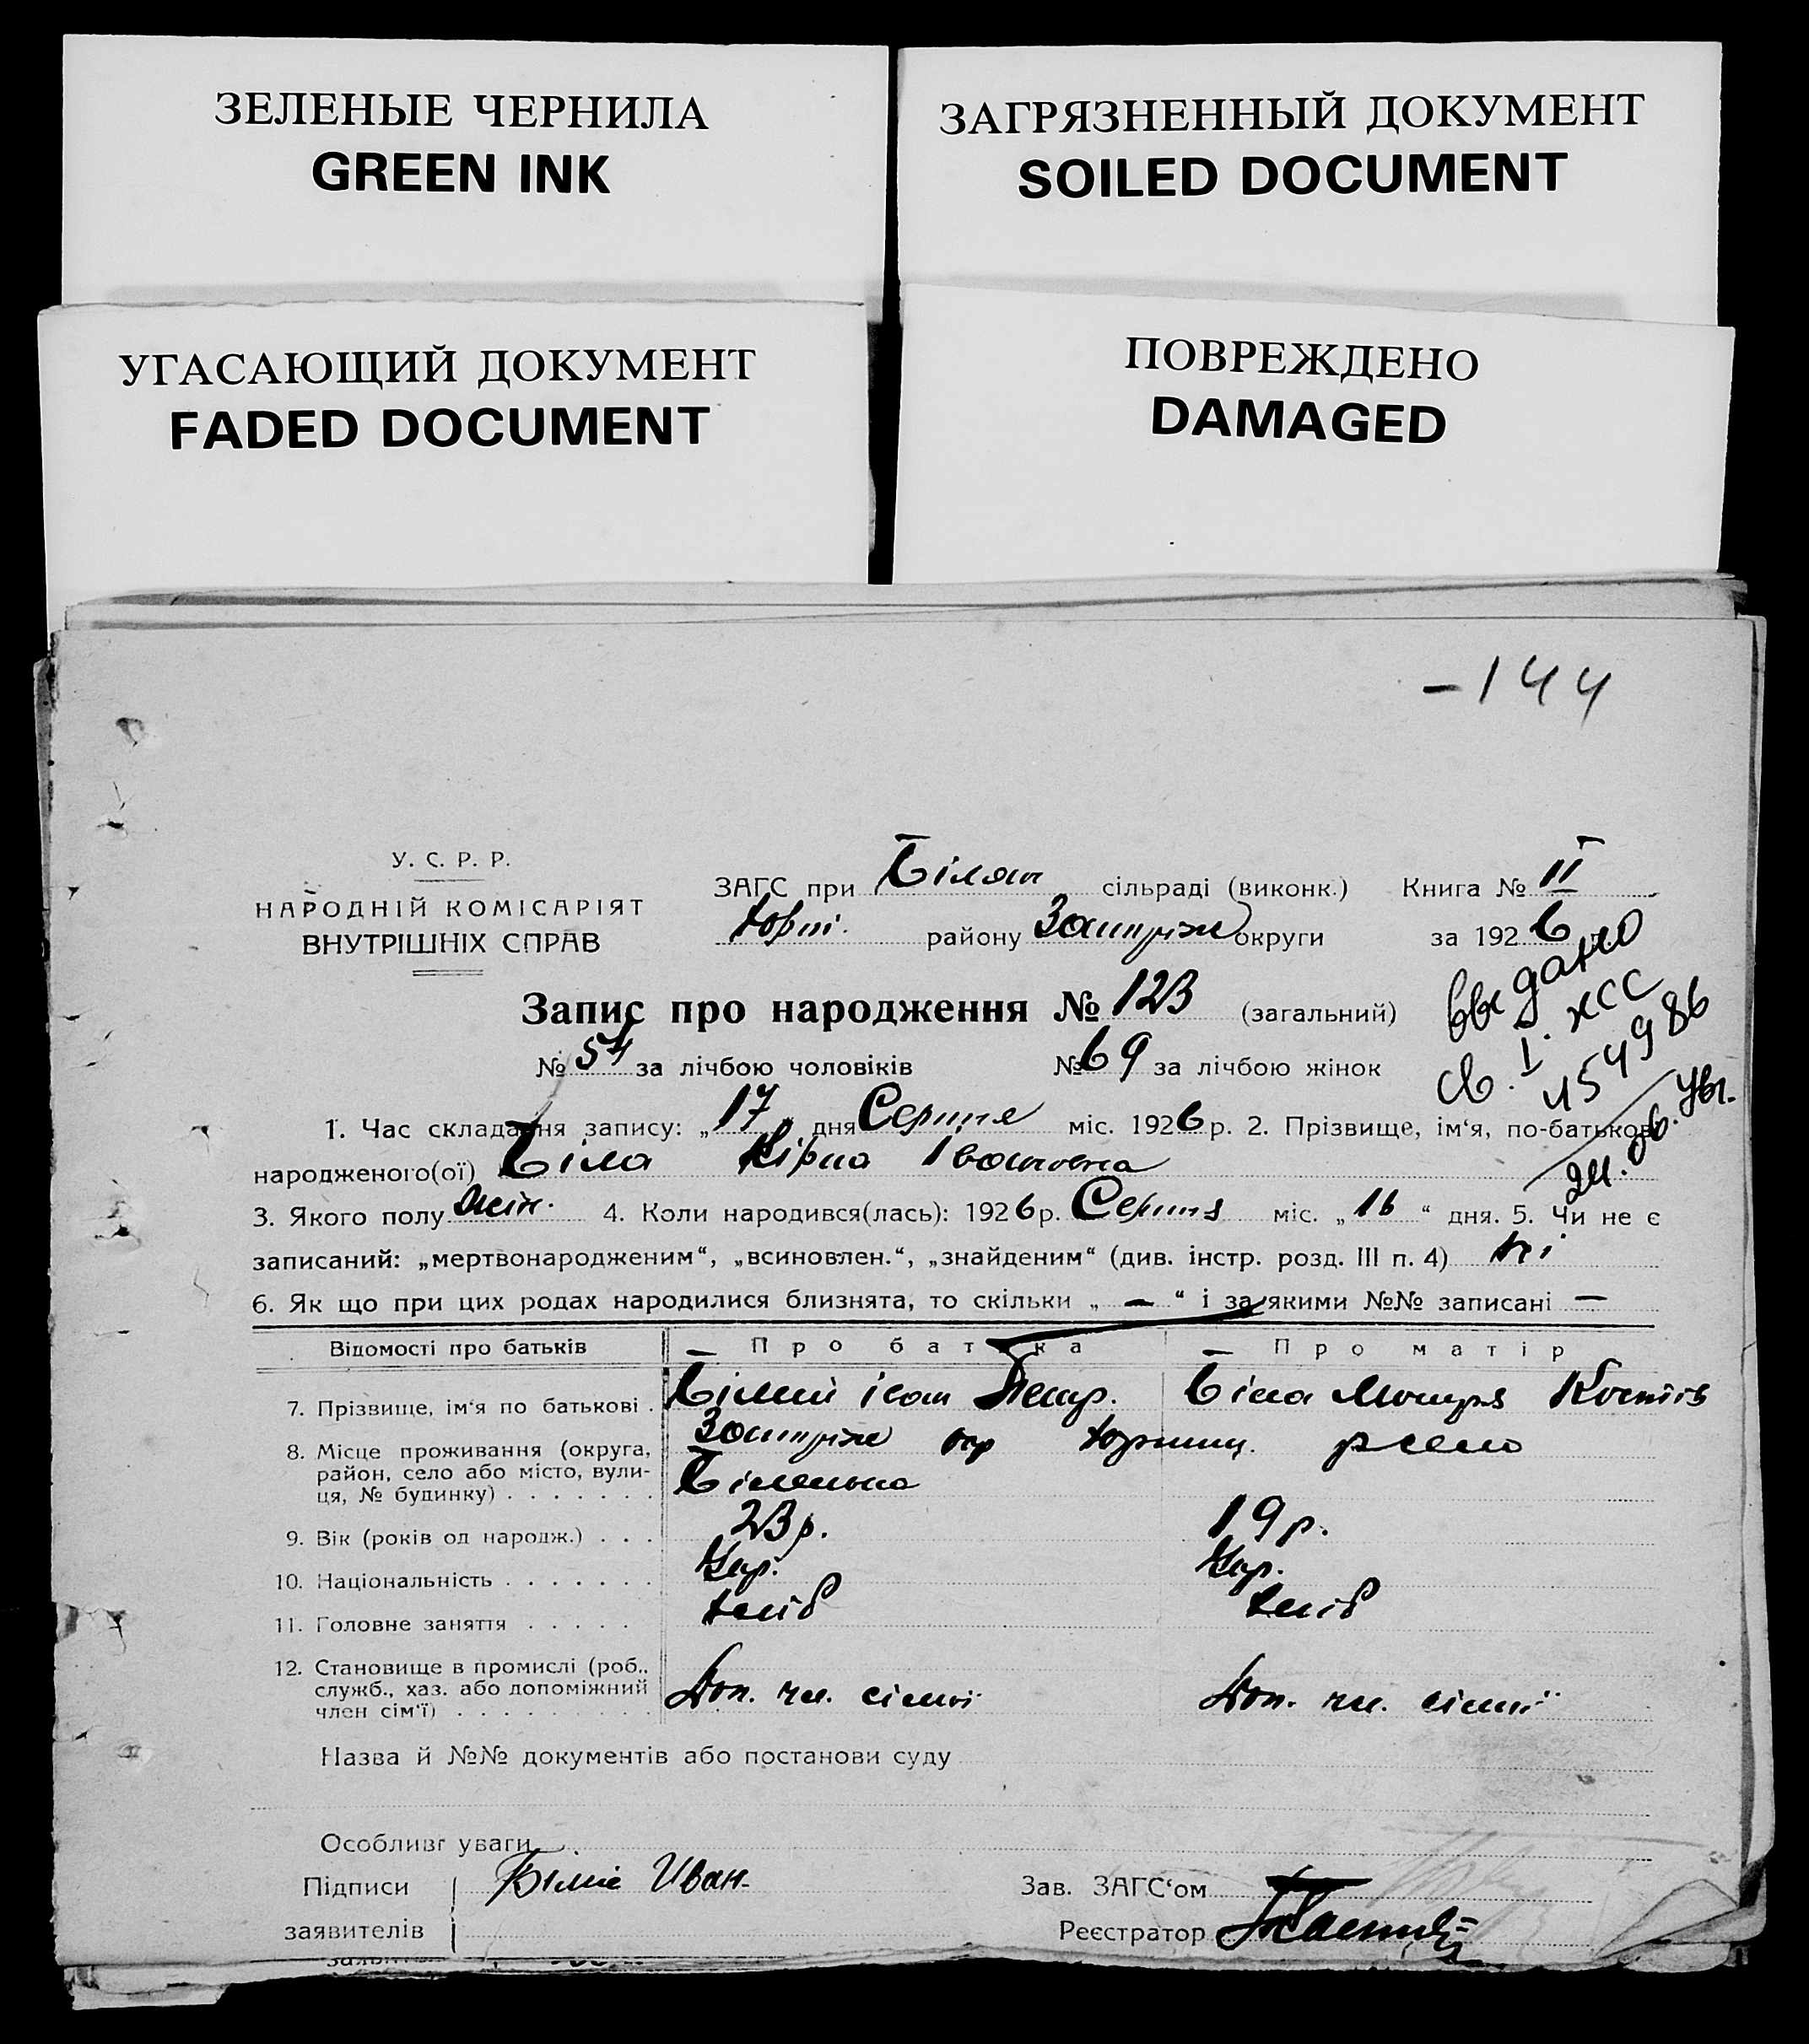 ЗЕЛЕНЫЕ ЧЕРНИЛА
GREEN INK
ЗАГРЯЗНЕННЫЙ ДОКУМЕНТ
SOILED DOCUMENT
УГАСАЮЩИЙ ДОКУМЕНТ
FADED DOCUMENT
ПОВРЕЖДЕНО
DAMAGED
-144
У. С. Р. Р.
НАРОДНІЙ КОМІСАРІЯТ
ВНУТРІШНІХ СПРАВ
ЗАГС при Білян сільраді (виконк.) Книга № II
району Запоріж округи за 1926
Запис про народження № 123 (загальний)
№ 54 за лічбою чоловіків № 69 за лічбою жінок
св. I. ЖСС
454986
1. Час складання запису: „17“ дня Серпня міс. 1926 р. 2. Прізвище, ім'я, по-батькові
народженого(ої) Біла Івановна
3. Якого полу жін. 4. Коли народився(лась): 1926 р. Серпня міс. „16“ дня. 5. Чи не є
записаний: „мертвонародженим“, „всиновлен.“, „знайденим“ (див. інстр. розд. III п. 4) ні
6. Як що при цих родах народилися близнята, то скільки „—“ і за якими №№ записані —
Відомості про батьків Про батька Про матір
7. Прізвище, ім'я по батькові . Білий Іван Петр. Біла Мотря Костів
8. Місце проживання (округа, Запоріж окр р село
район, село або місто, вули-
ця, № будинку) . . . . . . .
9. Вік (років од народж.) . . . 23 р. 19 р.
10. Національність . . . . . . . Укр. Укр.
11. Головне заняття . . . . . хліб хліб
12. Становище в промислі (роб.,
служб., хаз. або допоміжний Доп. чл. сімьї Доп. чл. сімьї
член сім'ї) . . . . . . . . .
Назва й №№ документів або постанови суду
Особливі уваги
Підписи Иван
Зав. ЗАГС'ом
заявителів
Реєстратор